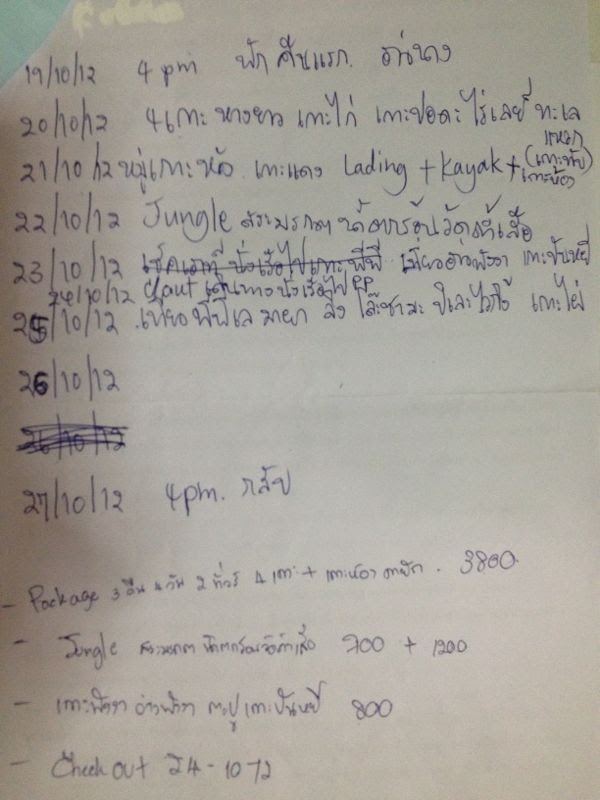 19/10/12 4 pm พัก คืนแรก. อ่าวนาง
20/10/12 4เกาะ หางยาว เกาะไก่ เกาะปอดะ ไร่เลย์ ทะเล
แหวก
21/10/12 หมู่เกาะห้อง เกาะแดง Lading + Kayak + (เกาะผักเบี้ย)
เกาะห้อง
22/10/12 Jungle สระมรกต น้ำตกร้อน วัดถ้ำเสือ
23/10/12 เช็คเอาท์ นั่งเรือไปเกาะพีพี เที่ยวอ่าวพังงา เกาะปันหยี
24/10/12 c/out เดินทางนั่งเรือไป PP
25/10/12 เที่ยว พีพีเล มาหยา ลิง โล๊ะซามะ ปิเละ ไวกิ้ง เกาะไผ่
26/10/12
27/10/12 4pm. กลับ
- Package 3 คืน 4 วัน 2 ทัวร์ 4 เกาะ + เกาะห้อง คายัค. 3800.
- Jungle สระมรกต น้ำตกร้อน วัดถ้ำเสือ 700 + 1200
- เกาะพังงา อ่าวพังงา ตะปู เกาะปันหยี 800
- Check out 24-10-12